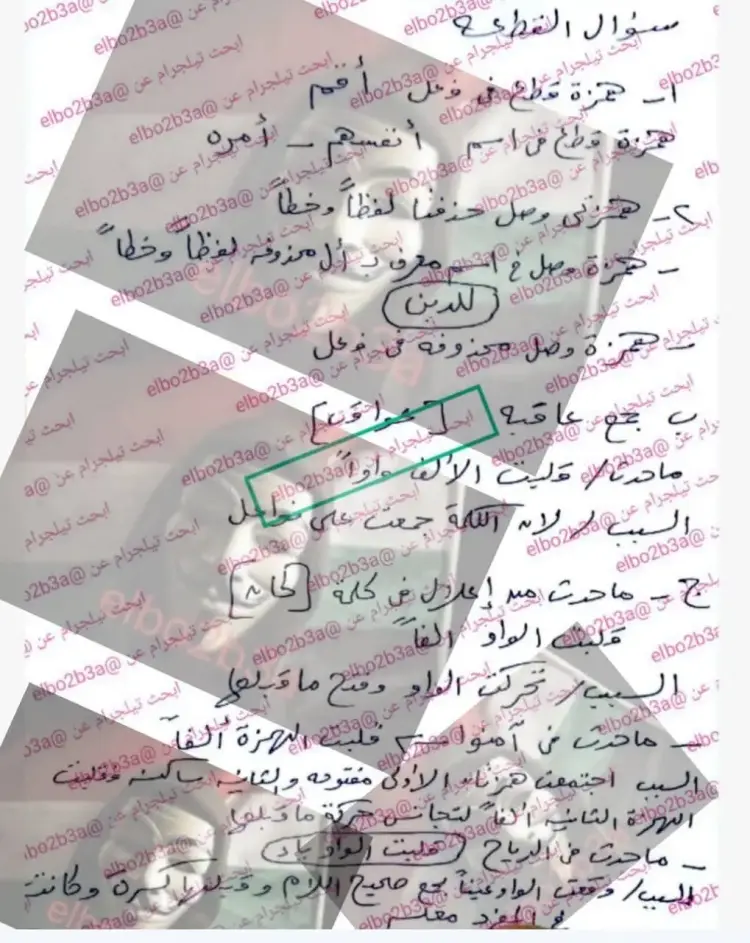 سؤال القطعة
أ- همزة قطع في فعل أقم
همزة قطع في اسم أنفسهم - أمره
٢- همزتي وصل حذفتا لفظاً وخطاً
- همزة وصل في اسم معرف بـ أل محذوفة لفظاً وخطاً
للدين
- همزة وصل محذوفة في فعل
ب جمع عاقبة [عواقب]
ماحدث/ قلبت الألف واواً
السبب/ لان الكلمة جمعت على فواعل
ج - ماحدث من إعلال في كلمة [كان]
قلبت الواو الفاً
السبب/ تحركت الواو وفتح ماقبلها
- ماحدث في آمنوا قلبت الهمزة ألفاً
السبب اجتمعت همزتان الاولى مفتوحه والثانيه ساكنه فقلبت
الهمزة الثانيه الفاً لتجانس حركة ماقبلها
- ماحدث في الرياح قلبت الواو ياء
السبب/ وقعت الواو عيناً جمع صحيح اللام وقبلها كسرة وكانت
في المفرد معله
ابحث تيلجرام عن @elbo2b3a
elbo2b3a